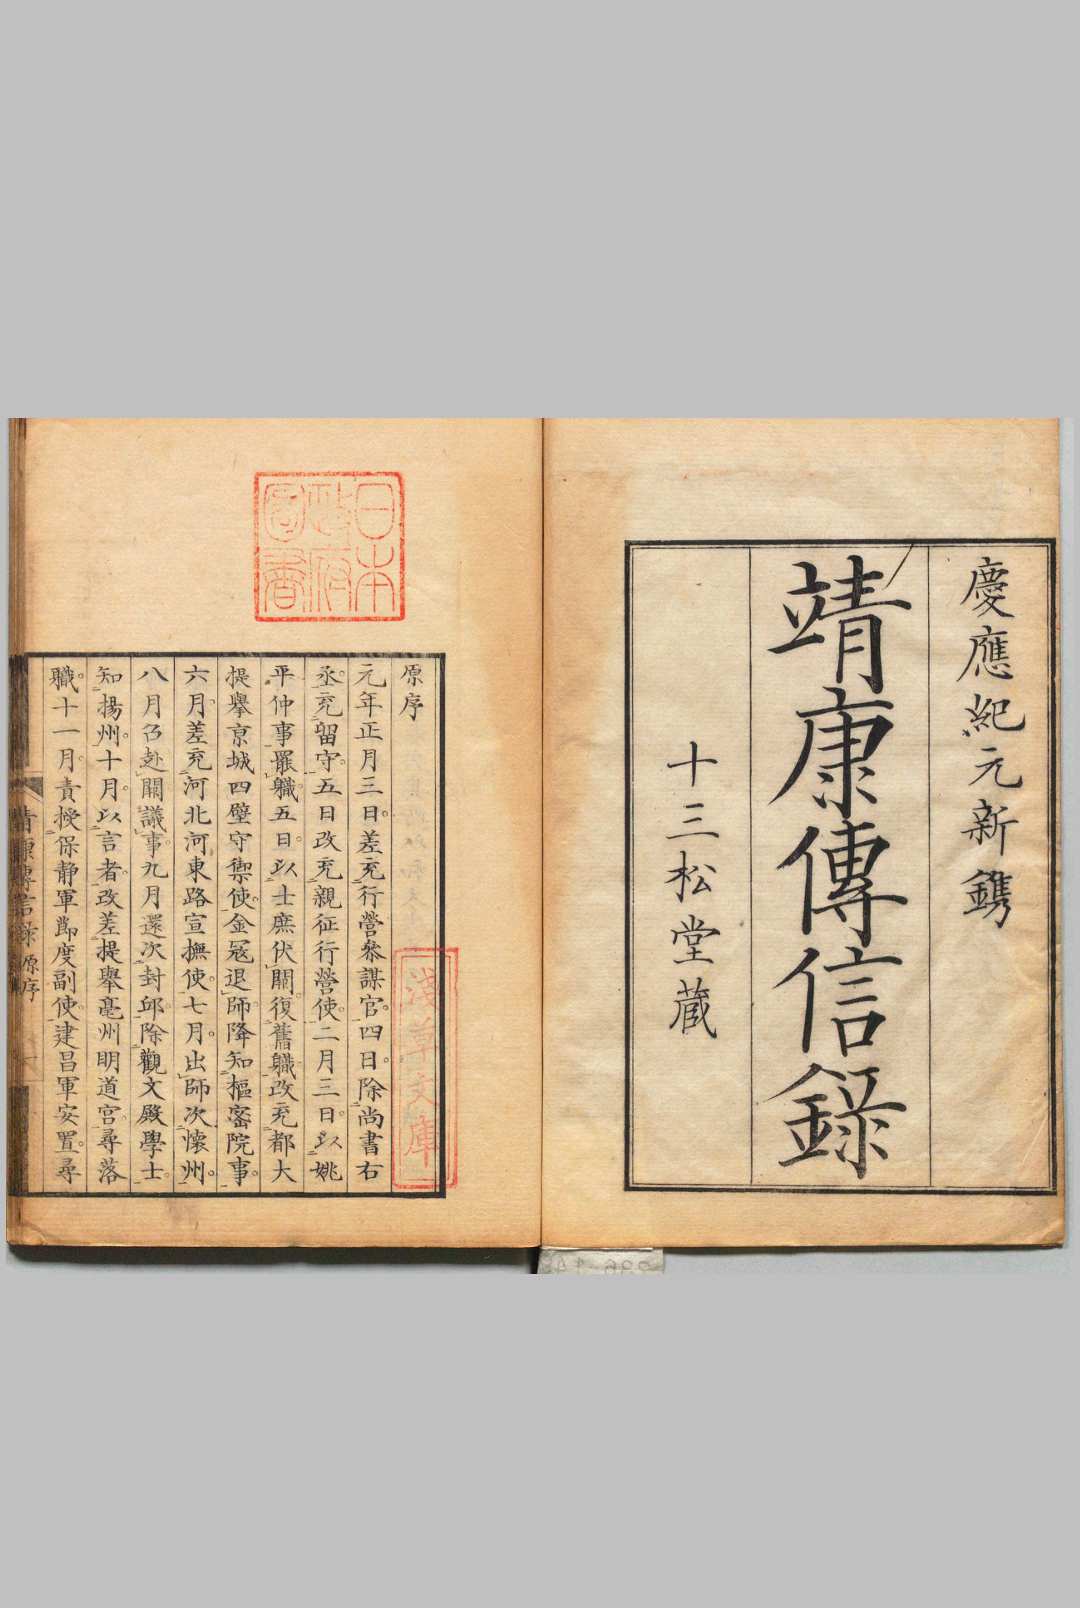 慶應紀元新鐫
靖康傳信錄
十三松堂蔵
日本
政府
圖書
原序
元年正月三日差充行營參謀官四日除尚書右
丞充留守五日改充親征行營使二月三日以姚
平仲事罷職五日以士庶伏闕復舊職改充都大
提舉京城四壁守禦使金冦退師降知樞密院事
六月差充河北河東路宣撫使七月出師次懷州
八月召赴闕議事九月還次封邱除觀文殿學士
知揚州十月以言者改差提舉亳州明道宮尋落
職十一月責授保静軍節度副使建昌軍安置尋
淺草文庫
靖康傳信錄原序